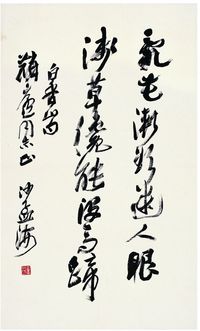 亂花漸欲迷人眼
淺草纔能沒馬蹄
白香山句
同志正
沙孟海